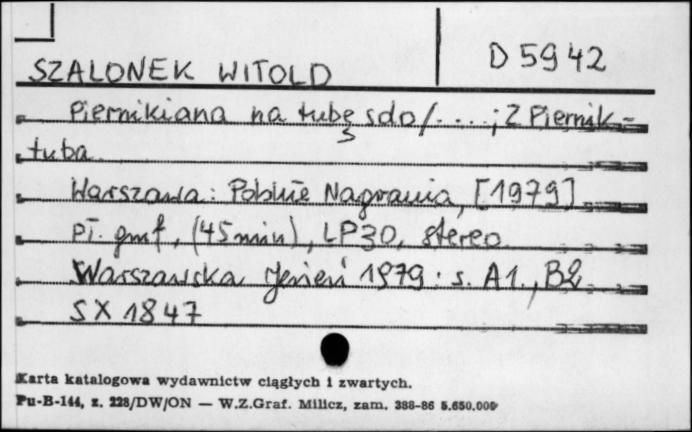 SZALONEK WITOLD
D 5942
Piernikiana na tubę solo /. . . .; Z Piernik -
tuba
Warszawa : Polskie Nagrania, [1979]
Pł. gmf, (45 min), LP30, stereo
Warszawska Jesień 1979 : s. A1., B2
SX 1847
Karta katalogowa wydawnictw ciągłych i zwartych.
Pu-B-144, z. 228/DW/ON — W.Z.Graf. Milicz, zam. 388-86 5.650.000